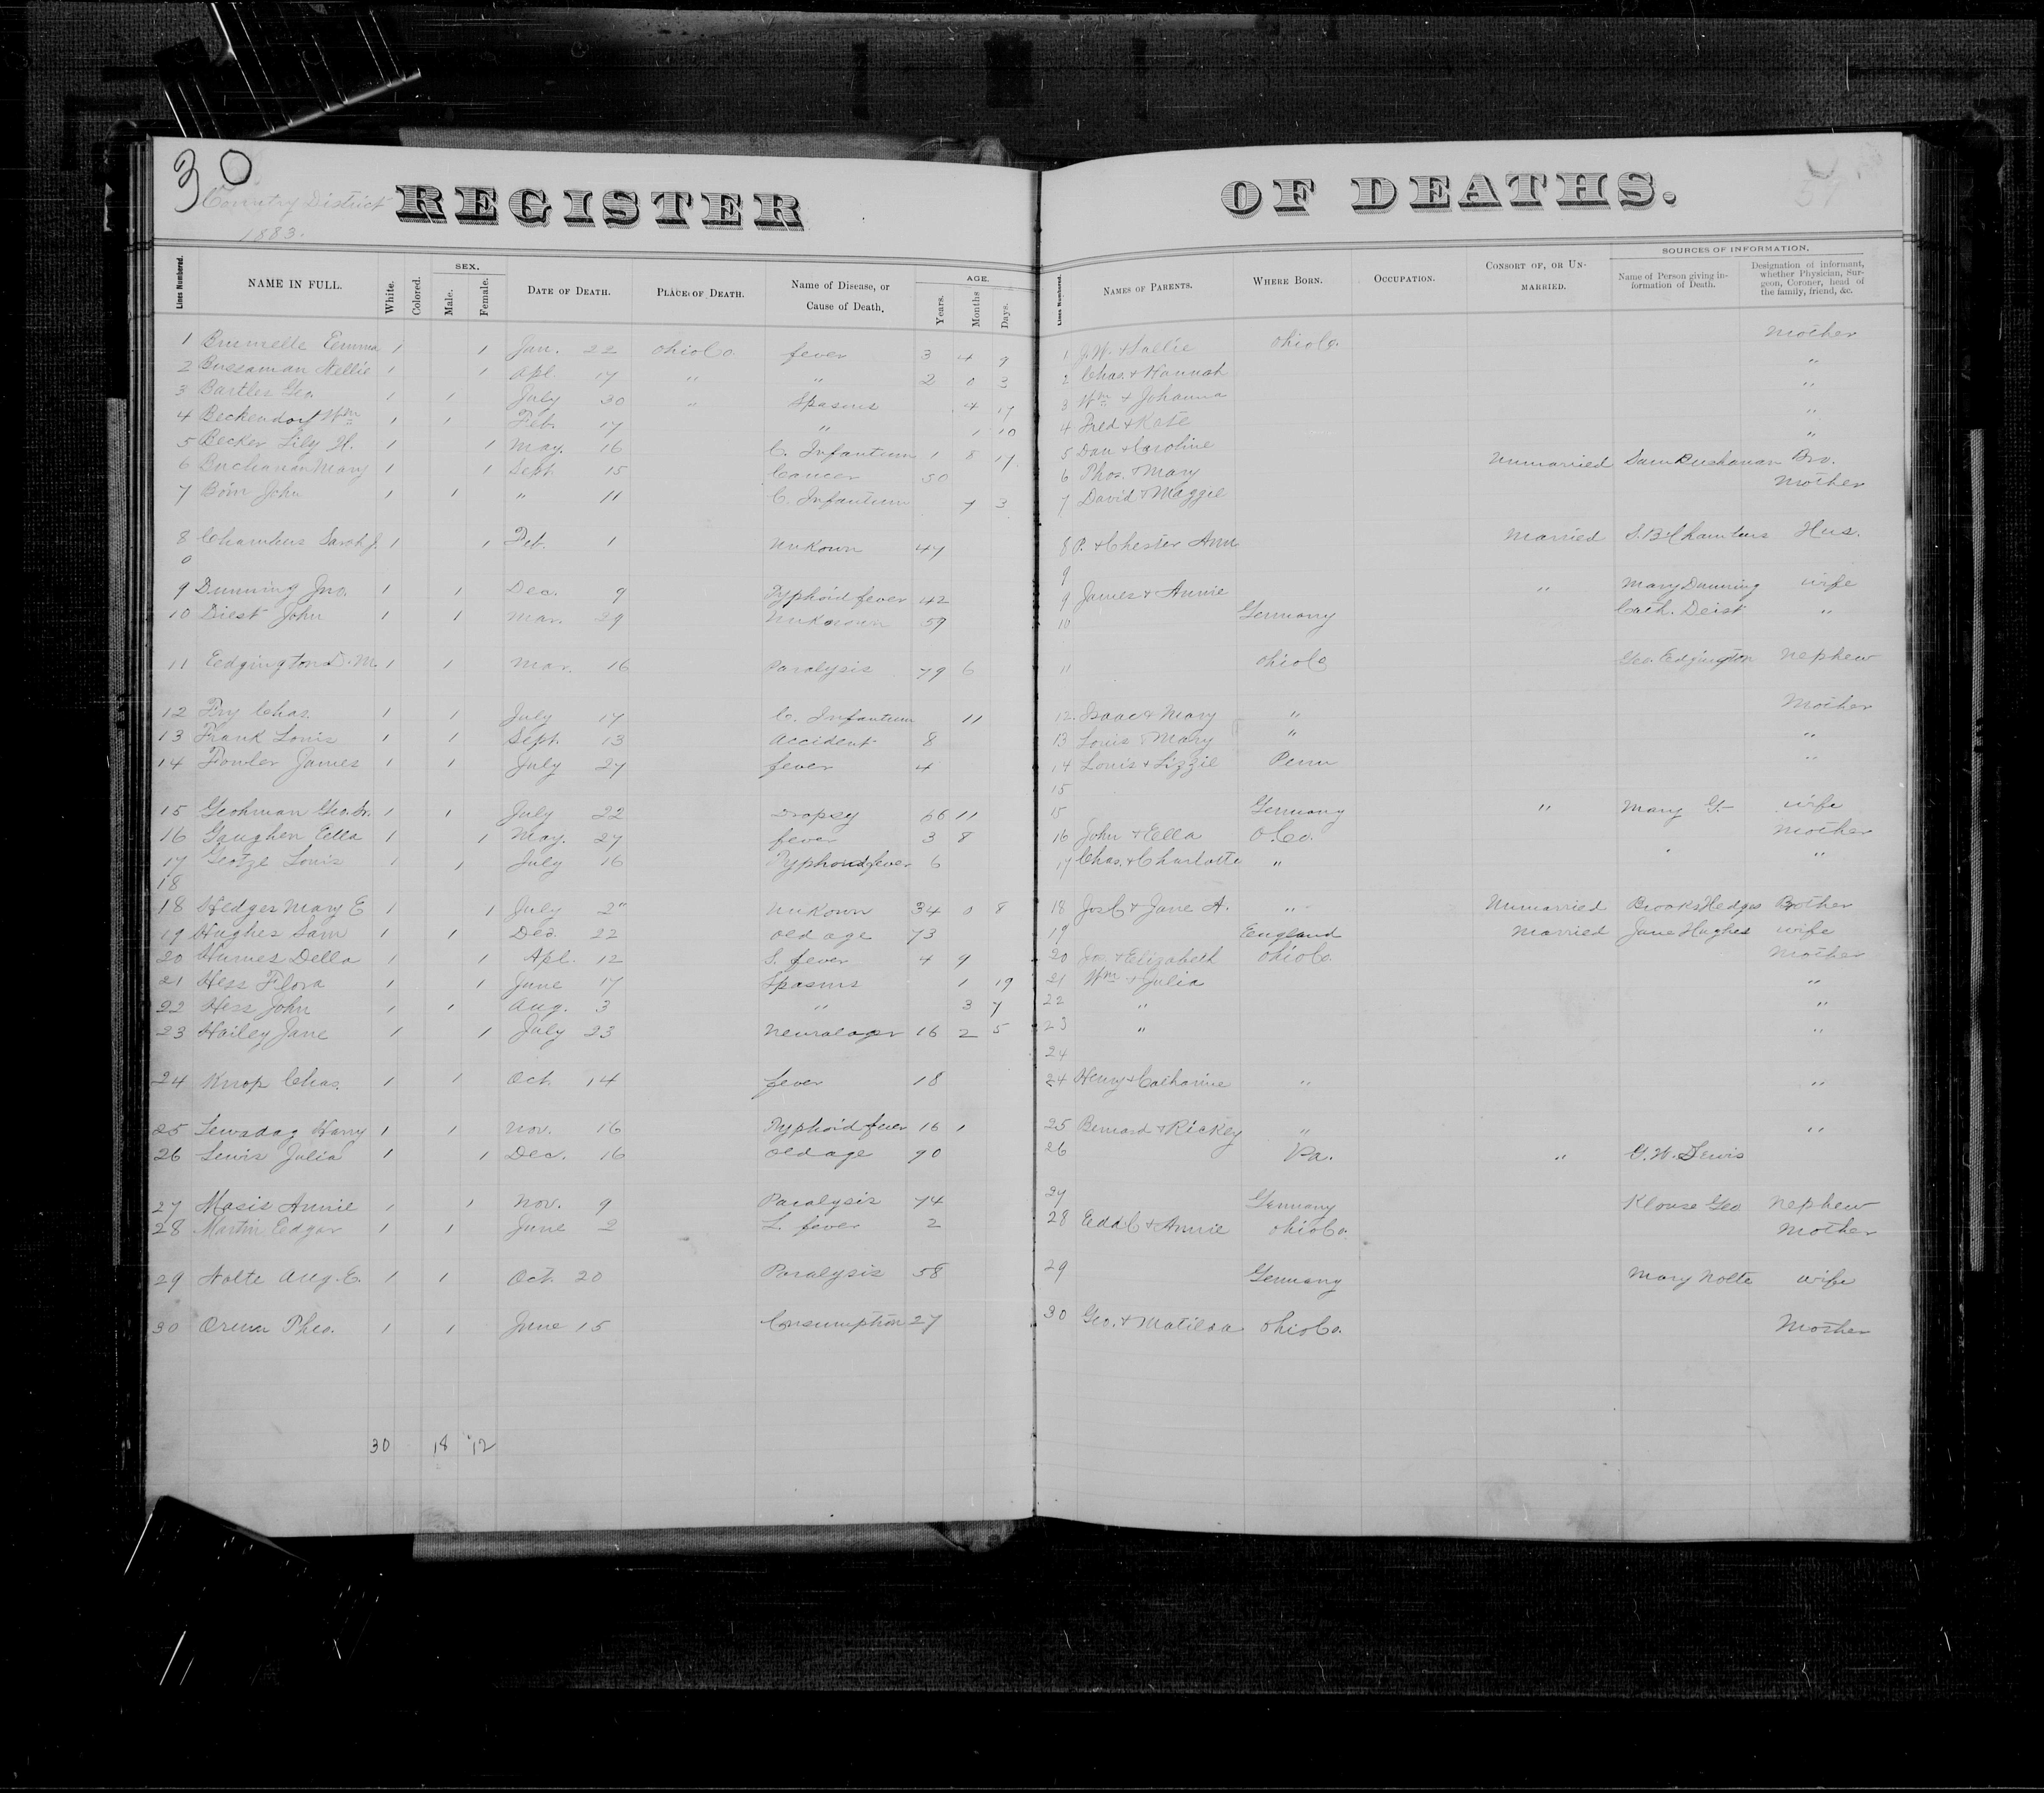 30
Country District
1883.
REGISTER OF DEATHS.
Lines Numbered. NAME IN FULL. White. Colored. SEX. Male. Female. DATE OF DEATH. PLACE OF DEATH. Name of Disease, or Cause of Death. AGE. Years. Months. Days. Lines Numbered. NAMES OF PARENTS. WHERE BORN. OCCUPATION. CONSORT OF, OR UNMARRIED. SOURCES OF INFORMATION. Name of Person giving information of Death. Designation of informant, whether Physician, Surgeon, Coroner, head of the family, friend, &c.
1 Brumelle Eemma 1 1 Jan. 22 Ohio Co. fever 3 4 9 1 J.W. & Sallie Ohio Co. Mother
2 Bussaman Nellie 1 1 Apl. 17 " " 2 0 3 2 Chas. & Hannah "
3 Bartles Geo 1 1 July 30 " Spasms 4 17 3 Wm & Johanna "
4 Beckendorf Wm 1 1 Feb. 17 " 1 10 4 Fred & Kate "
5 Becker Lily H. 1 1 May. 16 C. Infantum 1 8 17 5 Dan & Caroline "
6 Buchanan Mary 1 1 Sept 15 Cancer 50 6 Thos. & Mary Unmarried Sam Buchanan Bro.
7 John 1 1 " 11 C. Infantum 7 3 7 David & Maggie Mother
8 Chambers Sarah J. 1 1 Feb. 1 Unkown 47 8 P. & Chester Ann Married S.B. Chambers Hus.
0
9
9 Dunning Jno. 1 1 Dec. 9 Typhoid fever 42 9 James & Annie " Mary Dunning wife
10 Diest John 1 1 Mar. 29 Unknown 59 10 Germany Cath. Deist "
11 Eedgington D. M. 1 1 Mar. 16 Paralysis 79 6 11 Ohio Co Geo. Edgington Nephew
12 Fry Chas. 1 1 July 17 C. Infantum 11 12. Isaac & Mary " Mother
13 Frank Louis 1 1 Sept. 13 Accident 8 13 Louis & Mary " "
14 Fowler James 1 1 July 27 fever 4 14 Louis & Lizzie Penn "
15
15 Geohman Geo. Sr. 1 1 July 22 Dropsy 66 11 15 Germany " Mary G. wife
16 Gaughen Eella 1 1 May. 27 fever 3 8 16 John & Eella O. Co. Mother
17 Geotze Louis 1 1 July 16 Typhoid fever 6 17 Chas. & Charlotte " "
18
18 Hedges Mary E 1 1 July 2" Unkown 34 0 8 18 Jos C & Jane A. " Unmarried Brooks Hedges Brother
19 Hughes Sam 1 1 Dec. 22 Old age 73 19 England Married Jane Hughes wife
20 Humes Della 1 1 Apl. 12 S. fever 4 9 20 & Elizabeth Ohio Co. Mother
21 Hess Flora 1 1 June 17 Spasms 1 19 21 Wm & Julia "
22 Hess John 1 1 Aug. 3 " 3 7 22 " "
23 Hailey Jane 1 1 July 23 16 2 5 23 " "
24
24 Knop Chas. 1 1 Oct. 14 fever 18 24 Henry & Catharine " "
25 Harry 1 1 Nov. 16 Typhoid fever 16 1 25 Bernard & Rickey " "
26 Lewis Julia 1 1 Dec. 16 Old age 90 26 Pa. " G. W. Lewis
27 Masis Annie 1 1 Nov. 9 Paralysis 74 27 Germany Klouse Geo Nephew
28 Martin Eedgar 1 1 June 2 L. fever 2 28 Edd C & Annie Ohio Co. Mother
29 Nolte Aug. E. 1 1 Oct. 20 Paralysis 58 29 Germany Mary Nolte wife
30 Orum Theo. 1 1 June 15 Consumption 27 30 Geo. & Matilda Ohio Co. Mother
30 18 12